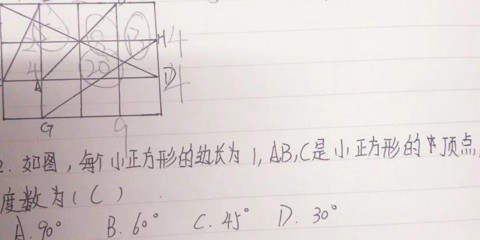 H 4
4 A 20 D 4
G 9
2. 如图，每个小正方形的边长为1，AB，C是小正方形的顶点，
度数为（C）
A. 90° B. 60° C. 45° D. 30°